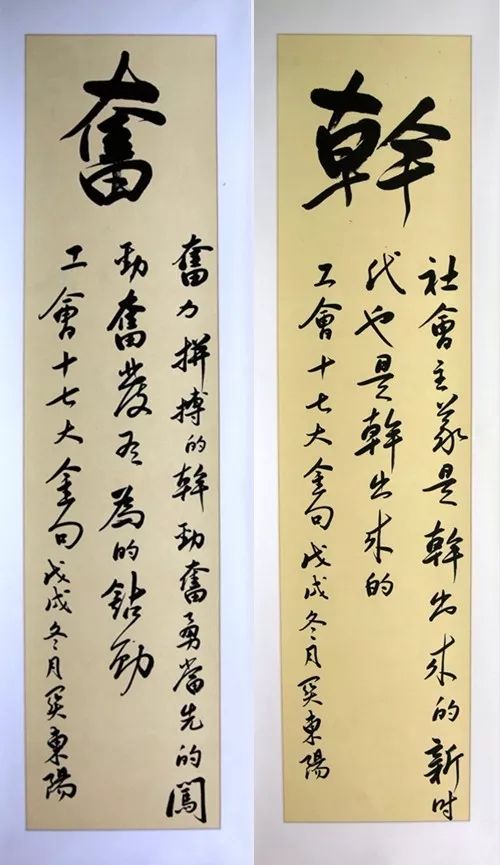 奮
奮力拼搏的幹勁奮勇當先的闖
勁奮發有為的鉆勁
工會十七大金句戊戌冬月東陽
幹
社會主義是幹出来的新时
代也是幹出来的
工會十七大金句戊戌冬月東陽